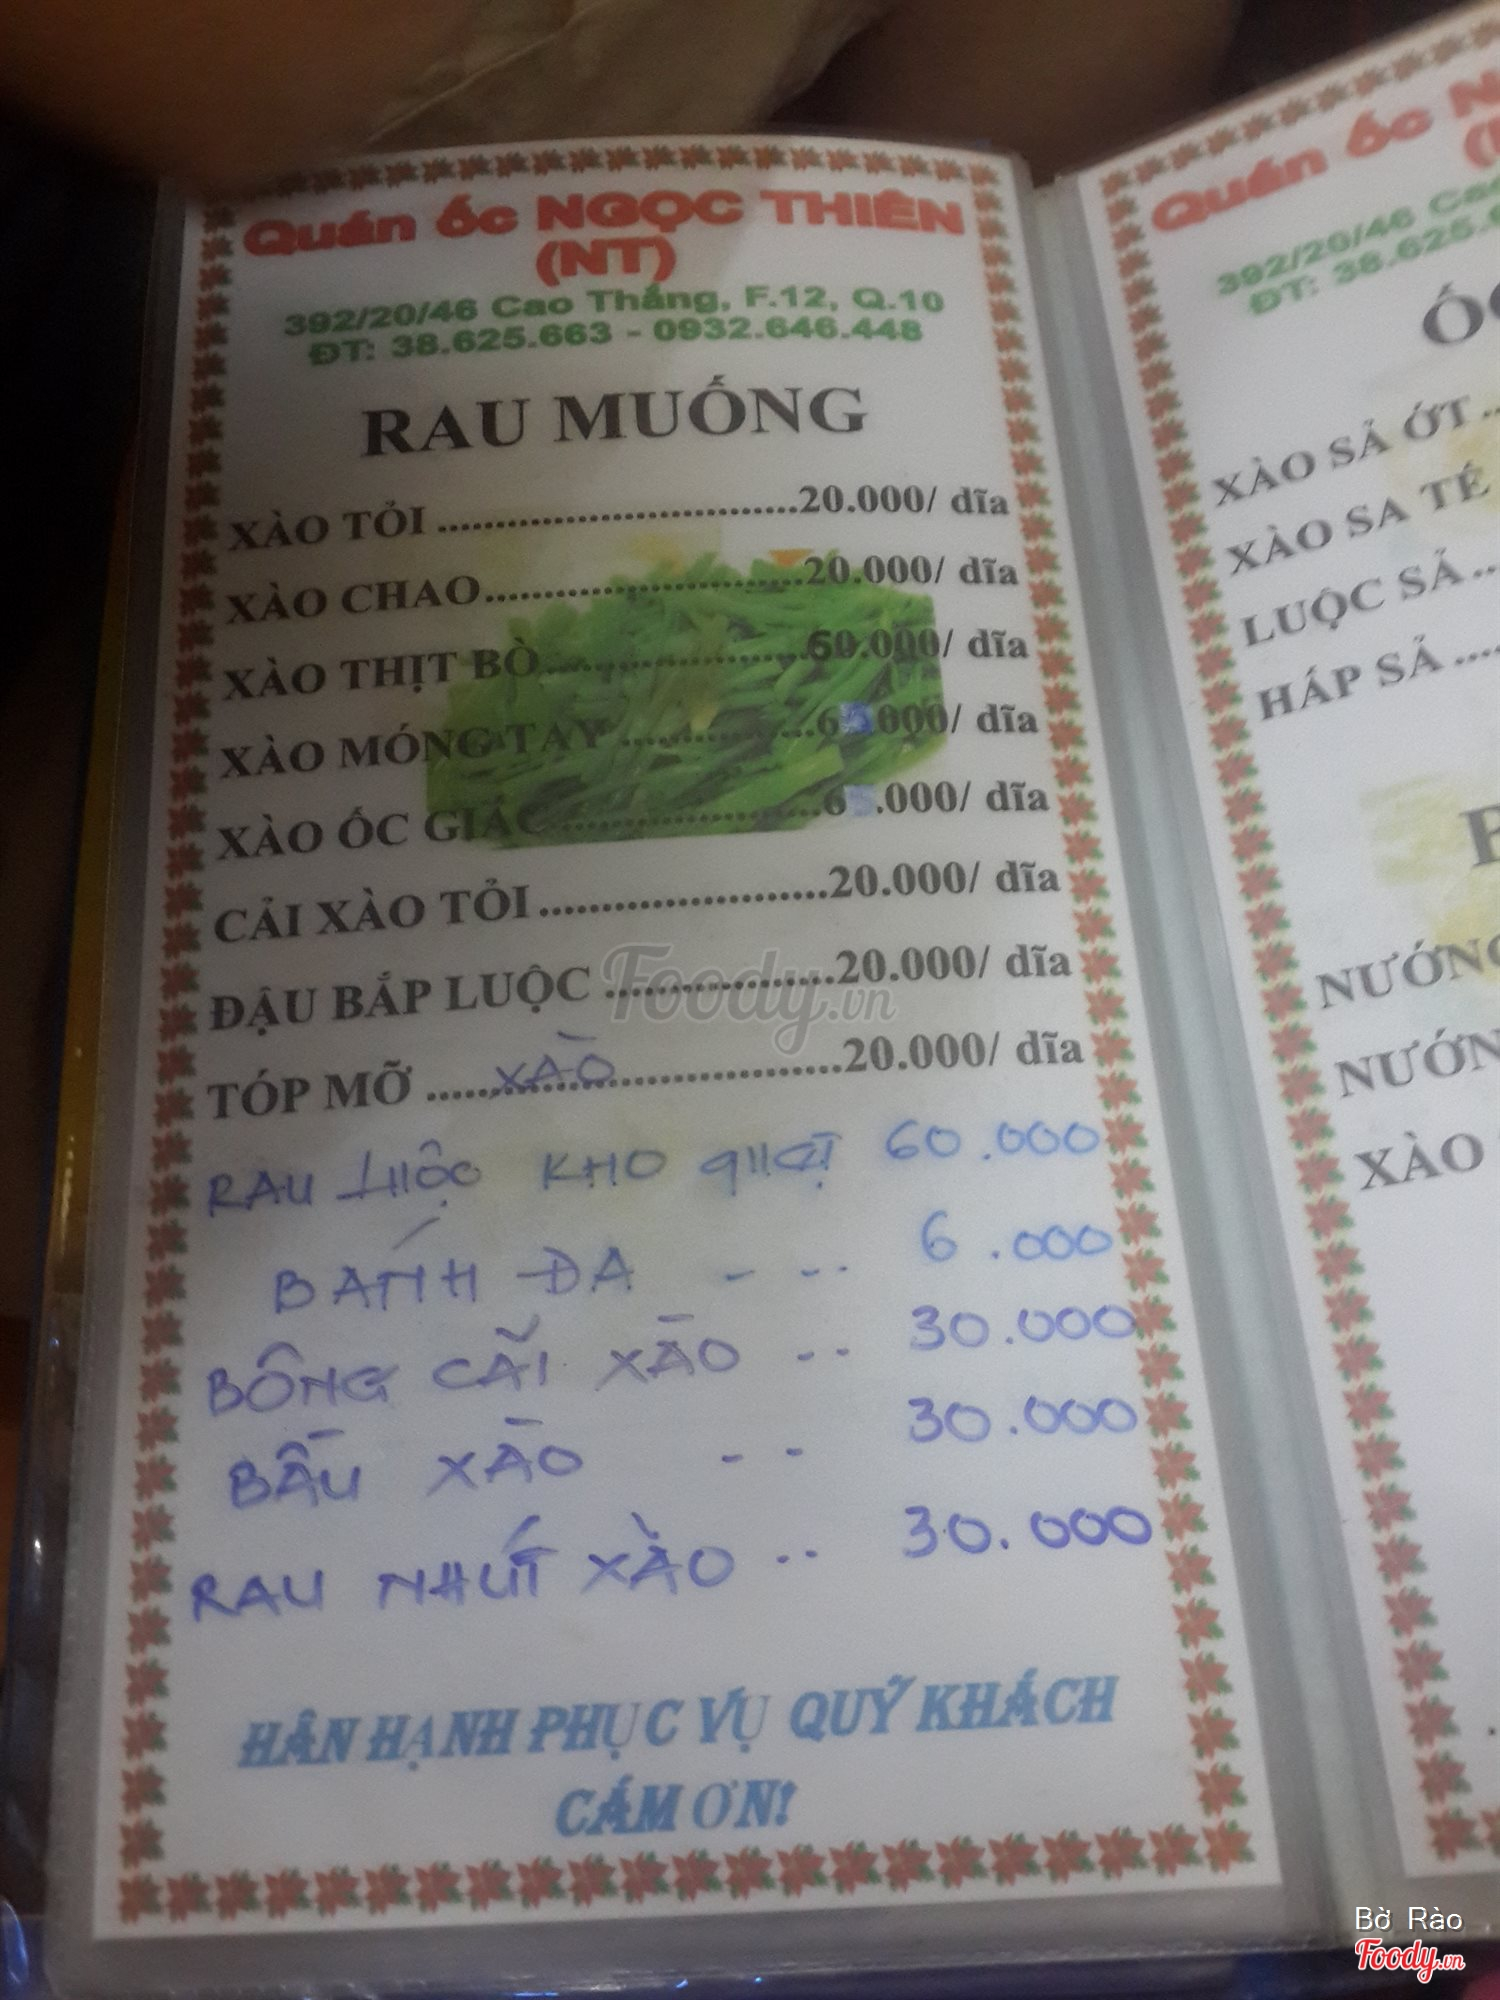 Quán ốc NGỌC THIÊN
(NT)
392/20/46 Cao Thắng, F.12, Q.10
ĐT: 38.625.663 - 0932.646.448
RAU MUỐNG
XÀO TỎI ................................20.000/ dĩa
XÀO CHAO............................20.000/ dĩa
XÀO THỊT BÒ.......................60.000/ dĩa
XÀO MÓNG TAY .................65.000/ dĩa
XÀO ỐC GIÁC .......................65.000/ dĩa
CẢI XÀO TỎI .......................20.000/ dĩa
ĐẬU BẮP LUỘC ..................20.000/ dĩa
TÓP MỠ ....XÀO....................20.000/ dĩa
RAU LUỘC KHO QUẸT 60.000
BÁNH ĐA - -.. 6.000
BÔNG CẢI XÀO .. 30.000
BẦU XÀO - - 30.000
RAU NHÚT XÀO .. 30.000
HÂN HẠNH PHỤC VỤ QUÝ KHÁCH
CÁM ƠN!
Quán ốc
392/20/46
ĐT: 38.625.
XÀO SẢ ỚT ..
XÀO SA TẾ
LUỘC SẢ...
HẤP SẢ ....
XÀO
Foody.vn
Bờ Rào
Foody.vn